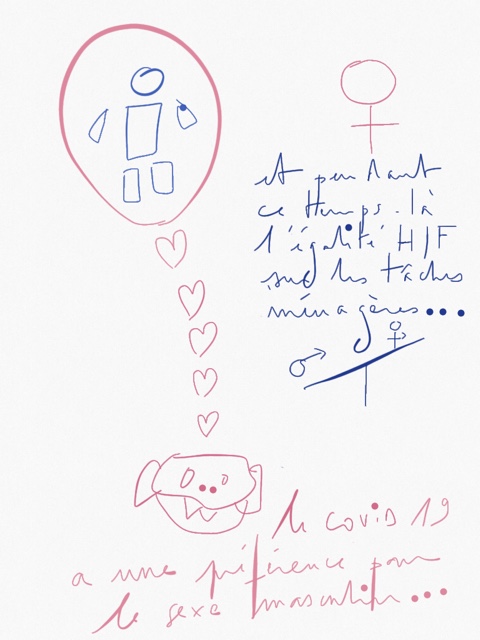 et pendant
ce temps-là
l'égalité H/F
sur les tâches
ménagères...
le covid 19
a une préférence pour
le sexe masculin...